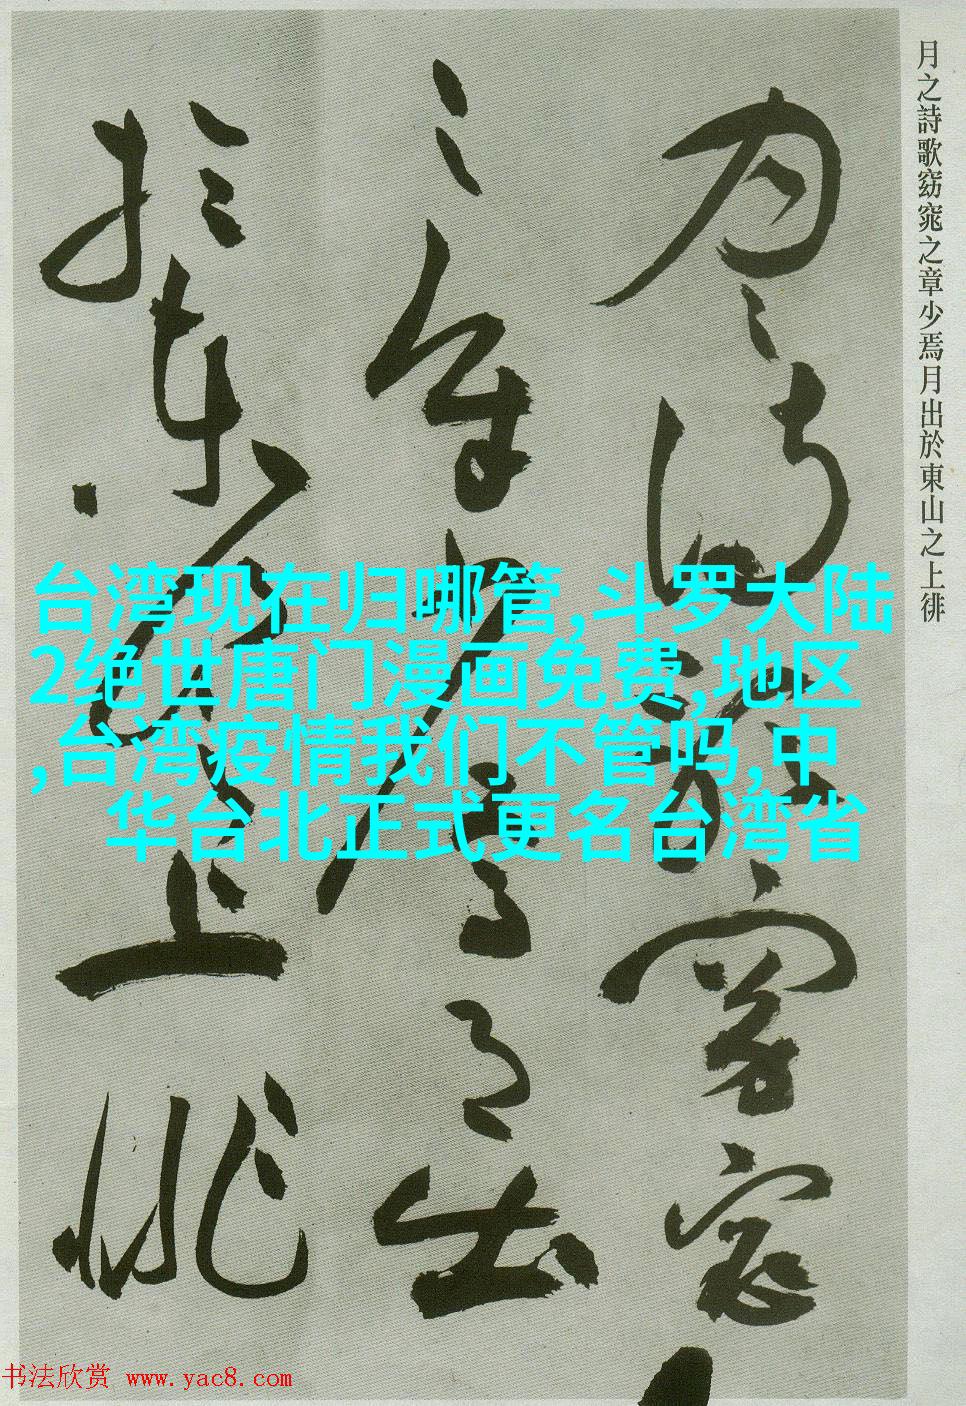 月之詩歌窈窕之章少焉月出於東山之上徘
月之詩歌窈窕
之章少焉月出
於東山之上徘
台湾现在归哪管,斗罗大陆
2绝世唐门漫画免费,地区
,台湾疫情我们不管吗,中
华台北正式更名台湾省
书法欣赏 www.yac8.com